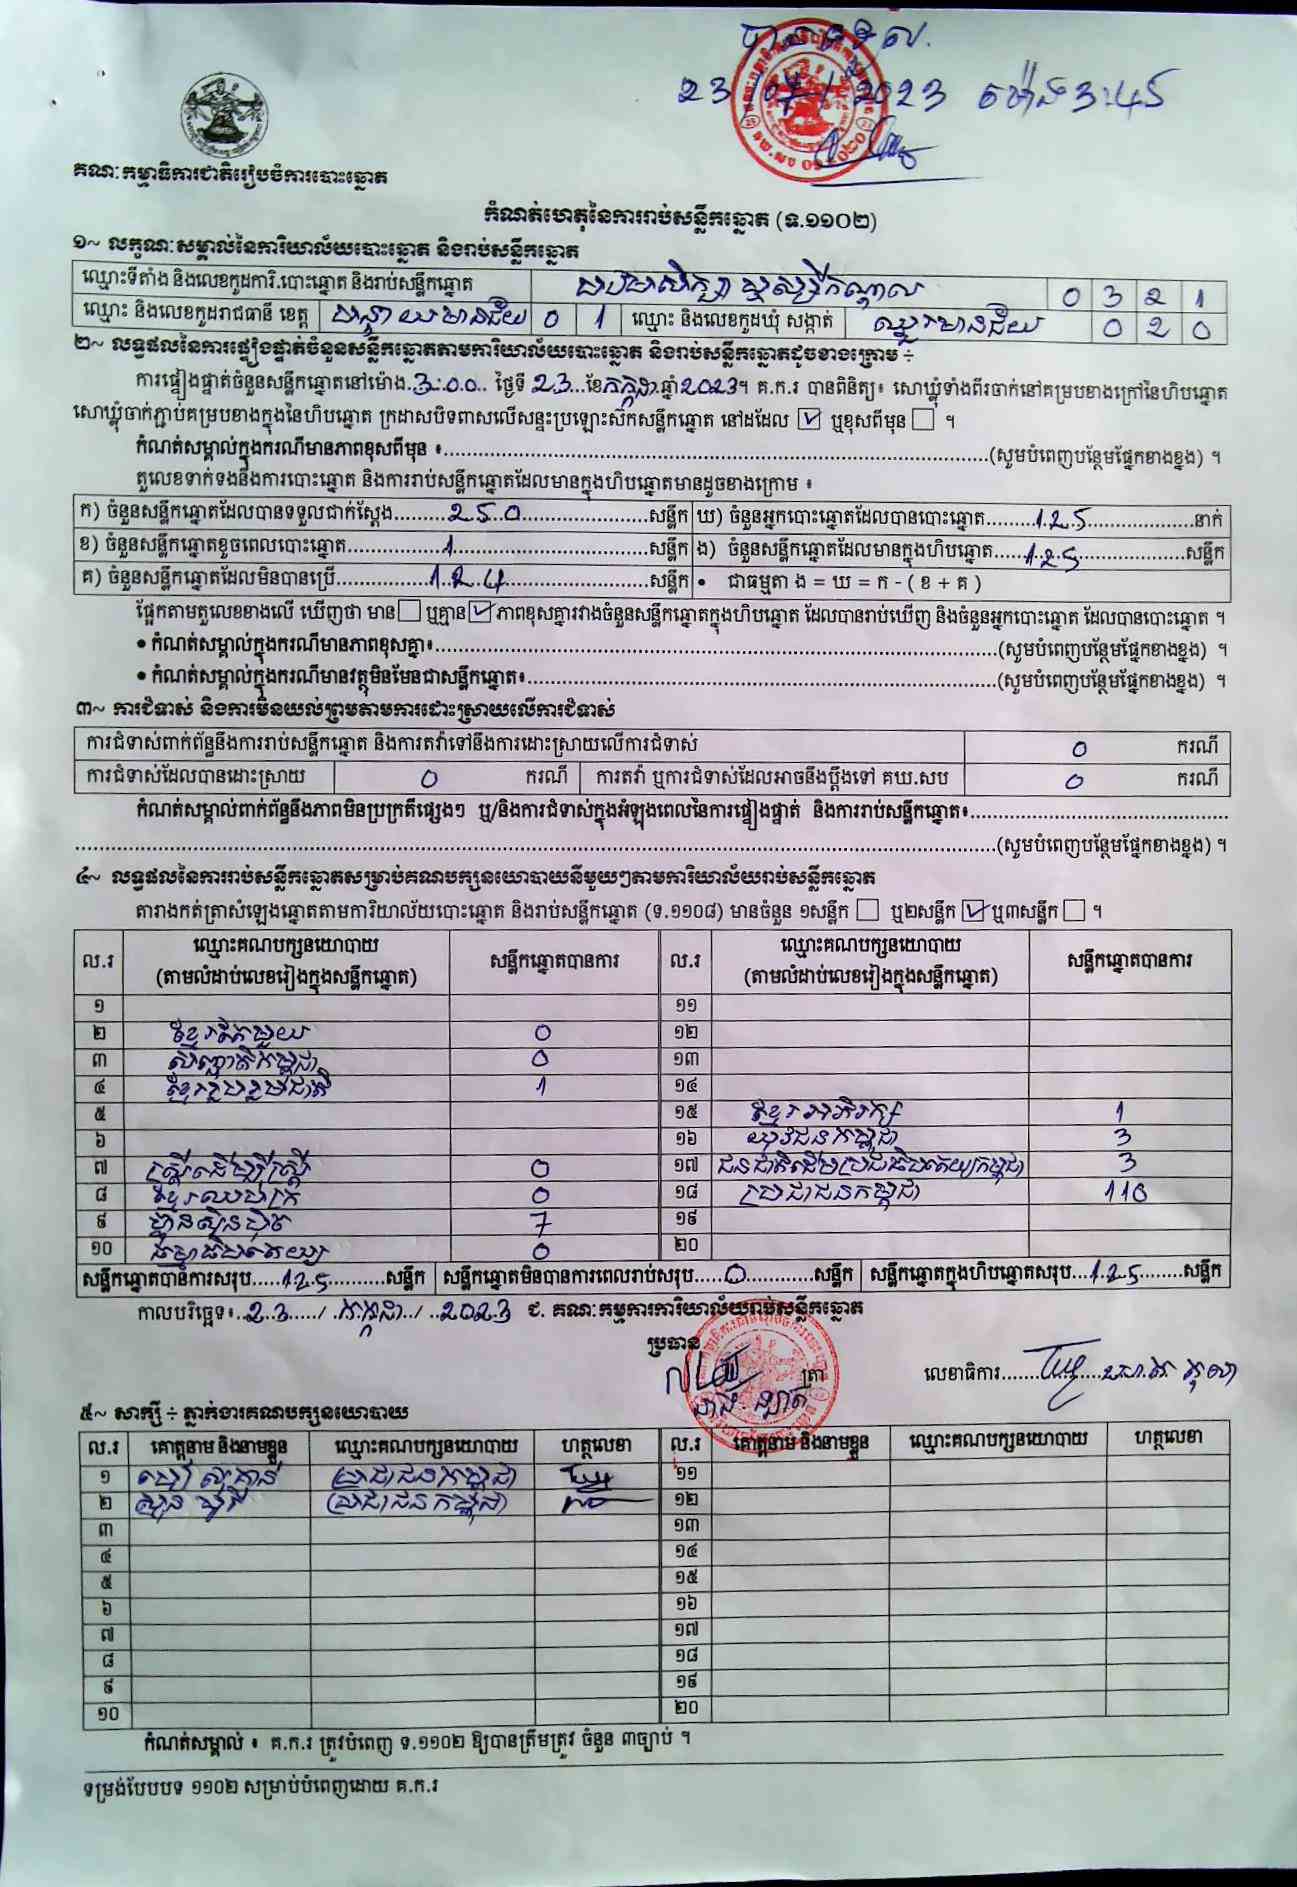 បានទទួល
23/07/2023 ម៉ោង 3:45
គណៈកម្មាធិការជាតិរៀបចំការបោះឆ្នោត
កំណត់ហេតុនៃការរាប់សន្លឹកឆ្នោត (ទ.១១០២)
១~ លក្ខណៈសម្គាល់នៃការិយាល័យបោះឆ្នោត និងរាប់សន្លឹកឆ្នោត
ឈ្មោះទីតាំង និងលេខកូដការិ.បោះឆ្នោត និងរាប់សន្លឹកឆ្នោត 0 3 2 1
ឈ្មោះ និងលេខកូដរាជធានី ខេត្ត បន្ទាយមានជ័យ 0 1 ឈ្មោះ និងលេខកូដឃុំ សង្កាត់ ឈ្នួរមានជ័យ 0 2 0
២~ លទ្ធផលនៃការផ្ទៀងផ្ទាត់ចំនួនសន្លឹកឆ្នោតតាមការិយាល័យបោះឆ្នោត និងរាប់សន្លឹកឆ្នោតដូចខាងក្រោម ÷
ការផ្ទៀងផ្ទាត់ចំនួនសន្លឹកឆ្នោតនៅម៉ោង.3:00.. ថ្ងៃទី 23...ខែកក្កដា.ឆ្នាំ2023។ គ.ក.រ បានពិនិត្យ៖ សោឃ្លុំទាំងពីរចាក់នៅគម្របខាងក្រៅនៃហិបឆ្នោត
សោឃ្លុំចាក់ភ្ជាប់គម្របខាងក្នុងនៃហិបឆ្នោត ក្រដាសបិទពាសលើសន្ទះប្រឡោះស៊កសន្លឹកឆ្នោត នៅដដែល ☑ ឬខុសពីមុន ☐ ។
កំណត់សម្គាល់ក្នុងករណីមានភាពខុសពីមុន ៖..........(សូមបំពេញបន្ថែមផ្នែកខាងខ្នង) ។
តួលេខទាក់ទងនឹងការបោះឆ្នោត និងការរាប់សន្លឹកឆ្នោតដែលមានក្នុងហិបឆ្នោតមានដូចខាងក្រោម ៖
ក) ចំនួនសន្លឹកឆ្នោតដែលបានទទួលជាក់ស្តែង.........250..........សន្លឹក ឃ) ចំនួនអ្នកបោះឆ្នោតដែលបានបោះឆ្នោត.........125..........នាក់
ខ) ចំនួនសន្លឹកឆ្នោតខូចពេលបោះឆ្នោត..........1..........សន្លឹក ង) ចំនួនសន្លឹកឆ្នោតដែលមានក្នុងហិបឆ្នោត......125..........សន្លឹក
គ) ចំនួនសន្លឹកឆ្នោតដែលមិនបានប្រើ..........124..........សន្លឹក • ជាធម្មតា ង = ឃ = ក - ( ខ + គ )
ផ្អែកតាមតួលេខខាងលើ ឃើញថា មាន ☐ ឬគ្មាន ☑ ភាពខុសគ្នារវាងចំនួនសន្លឹកឆ្នោតក្នុងហិបឆ្នោត ដែលបានរាប់ឃើញ និងចំនួនអ្នកបោះឆ្នោត ដែលបានបោះឆ្នោត ។
• កំណត់សម្គាល់ក្នុងករណីមានភាពខុសគ្នា៖..........(សូមបំពេញបន្ថែមផ្នែកខាងខ្នង) ។
• កំណត់សម្គាល់ក្នុងករណីមានវត្ថុមិនមែនជាសន្លឹកឆ្នោត៖..........(សូមបំពេញបន្ថែមផ្នែកខាងខ្នង) ។
៣~ ការជំទាស់ និងការមិនយល់ព្រមតាមការដោះស្រាយលើការជំទាស់
ការជំទាស់ពាក់ព័ន្ធនឹងការរាប់សន្លឹកឆ្នោត និងការតវ៉ាទៅនឹងការដោះស្រាយលើការជំទាស់ 0 ករណី
ការជំទាស់ដែលបានដោះស្រាយ 0 ករណី ការតវ៉ា ឬការជំទាស់ដែលអាចនឹងប្តឹងទៅ គឃ.សប 0 ករណី
កំណត់សម្គាល់ពាក់ព័ន្ធនឹងភាពមិនប្រក្រតីផ្សេងៗ ឬ/និងការជំទាស់ក្នុងអំឡុងពេលនៃការផ្ទៀងផ្ទាត់ និងការរាប់សន្លឹកឆ្នោត៖..........
..........(សូមបំពេញបន្ថែមផ្នែកខាងខ្នង) ។
៤~ លទ្ធផលនៃការរាប់សន្លឹកឆ្នោតសម្រាប់គណបក្សនយោបាយនីមួយៗតាមការិយាល័យរាប់សន្លឹកឆ្នោត
តារាងកត់ត្រាសំឡេងឆ្នោតតាមការិយាល័យបោះឆ្នោត និងរាប់សន្លឹកឆ្នោត (ទ.១១០៨) មានចំនួន ១សន្លឹក ☐ ឬ២សន្លឹក ☑ ឬ៣សន្លឹក ☐ ។
ល.រ ឈ្មោះគណបក្សនយោបាយ សន្លឹកឆ្នោតបានការ ល.រ ឈ្មោះគណបក្សនយោបាយ សន្លឹកឆ្នោតបានការ
(តាមលំដាប់លេខរៀងក្នុងសន្លឹកឆ្នោត) (តាមលំដាប់លេខរៀងក្នុងសន្លឹកឆ្នោត)
១ ១១
២ ខ្មែរតែមួយ 0 ១២
៣ សញ្ជាតិកម្ពុជា 0 ១៣
៤ ខ្មែររួបរួមជាតិ 1 ១៤
៥ ១៥ ខ្មែរអភិរក្ស 1
៦ ១៦ យុវជនកម្ពុជា 3
៧ ស្ត្រីដើម្បីស្ត្រី 0 ១៧ ជនជាតិដើមប្រជាធិបតេយ្យកម្ពុជា 3
៨ ខ្មែរឈប់ក្រ 0 ១៨ ប្រជាជនកម្ពុជា 110
៩ ហ៊្វុនស៊ិនប៉ិច 7 ១៩
១០ ធម្មាធិបតេយ្យ 0 ២០
សន្លឹកឆ្នោតបានការសរុប.....125..........សន្លឹក សន្លឹកឆ្នោតមិនបានការពេលរាប់សរុប.....0..........សន្លឹក សន្លឹកឆ្នោតក្នុងហិបឆ្នោតសរុប...125........សន្លឹក
កាលបរិច្ឆេទ៖..23...../.កក្កដា../..2023 ជ. គណៈកម្មការការិយាល័យរាប់សន្លឹកឆ្នោត
ប្រធាន
ត្រា លេខាធិការ..........
៥~ សាក្សី ÷ ភ្នាក់ងារគណបក្សនយោបាយ
ល.រ គោត្តនាម និងនាមខ្លួន ឈ្មោះគណបក្សនយោបាយ ហត្ថលេខា ល.រ គោត្តនាម និងនាមខ្លួន ឈ្មោះគណបក្សនយោបាយ ហត្ថលេខា
១ ប្រជាជនកម្ពុជា ១១
២ ប្រជាជនកម្ពុជា ១២
៣ ១៣
៤ ១៤
៥ ១៥
៦ ១៦
៧ ១៧
៨ ១៨
៩ ១៩
១០ ២០
កំណត់សម្គាល់ ៖ គ.ក.រ ត្រូវបំពេញ ទ.១១០២ ឱ្យបានត្រឹមត្រូវ ចំនួន ៣ច្បាប់ ។
ទម្រង់បែបបទ ១១០២ សម្រាប់បំពេញដោយ គ.ក.រ